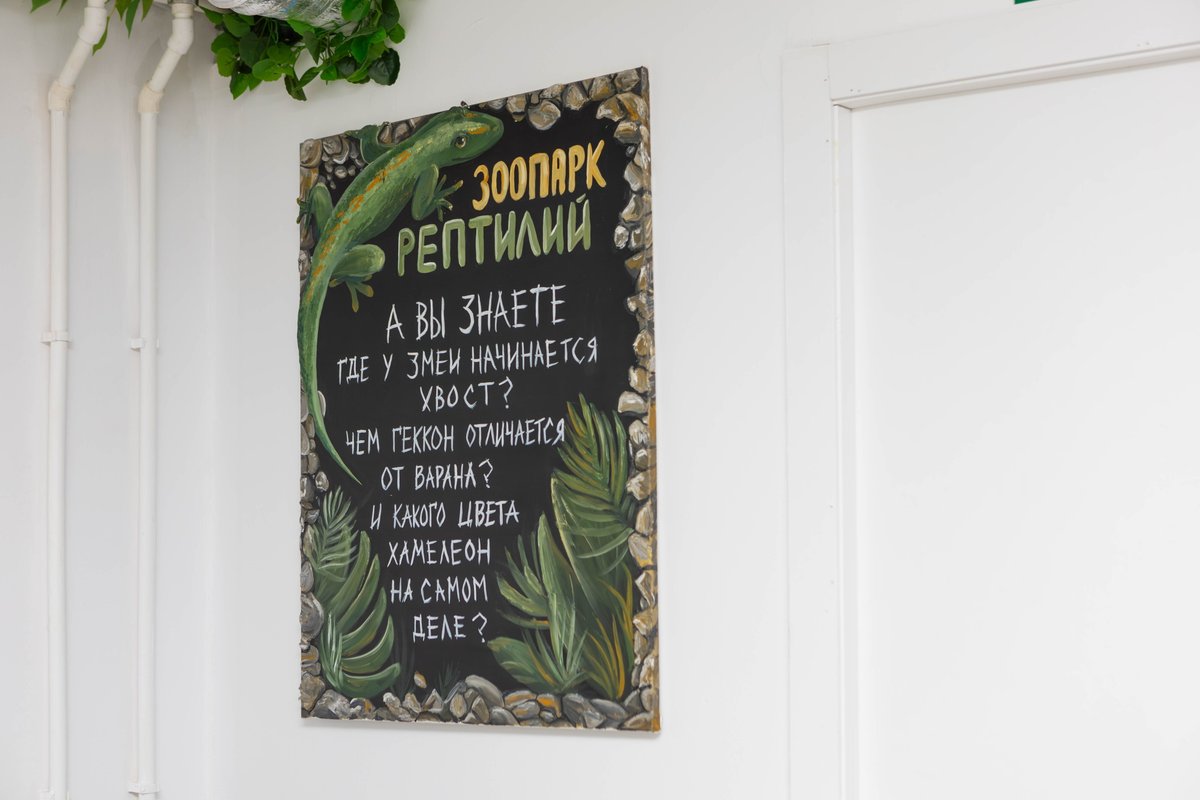 ЗООПАРК
РЕПТИЛИЙ
А ВЫ ЗНАЕТЕ
ГДЕ У ЗМЕИ НАЧИНАЕТСЯ
ХВОСТ?
ЧЕМ ГЕККОН ОТЛИЧАЕТСЯ
ОТ ВАРАНА?
И КАКОГО ЦВЕТА
ХАМЕЛЕОН
НА САМОМ
ДЕЛЕ?